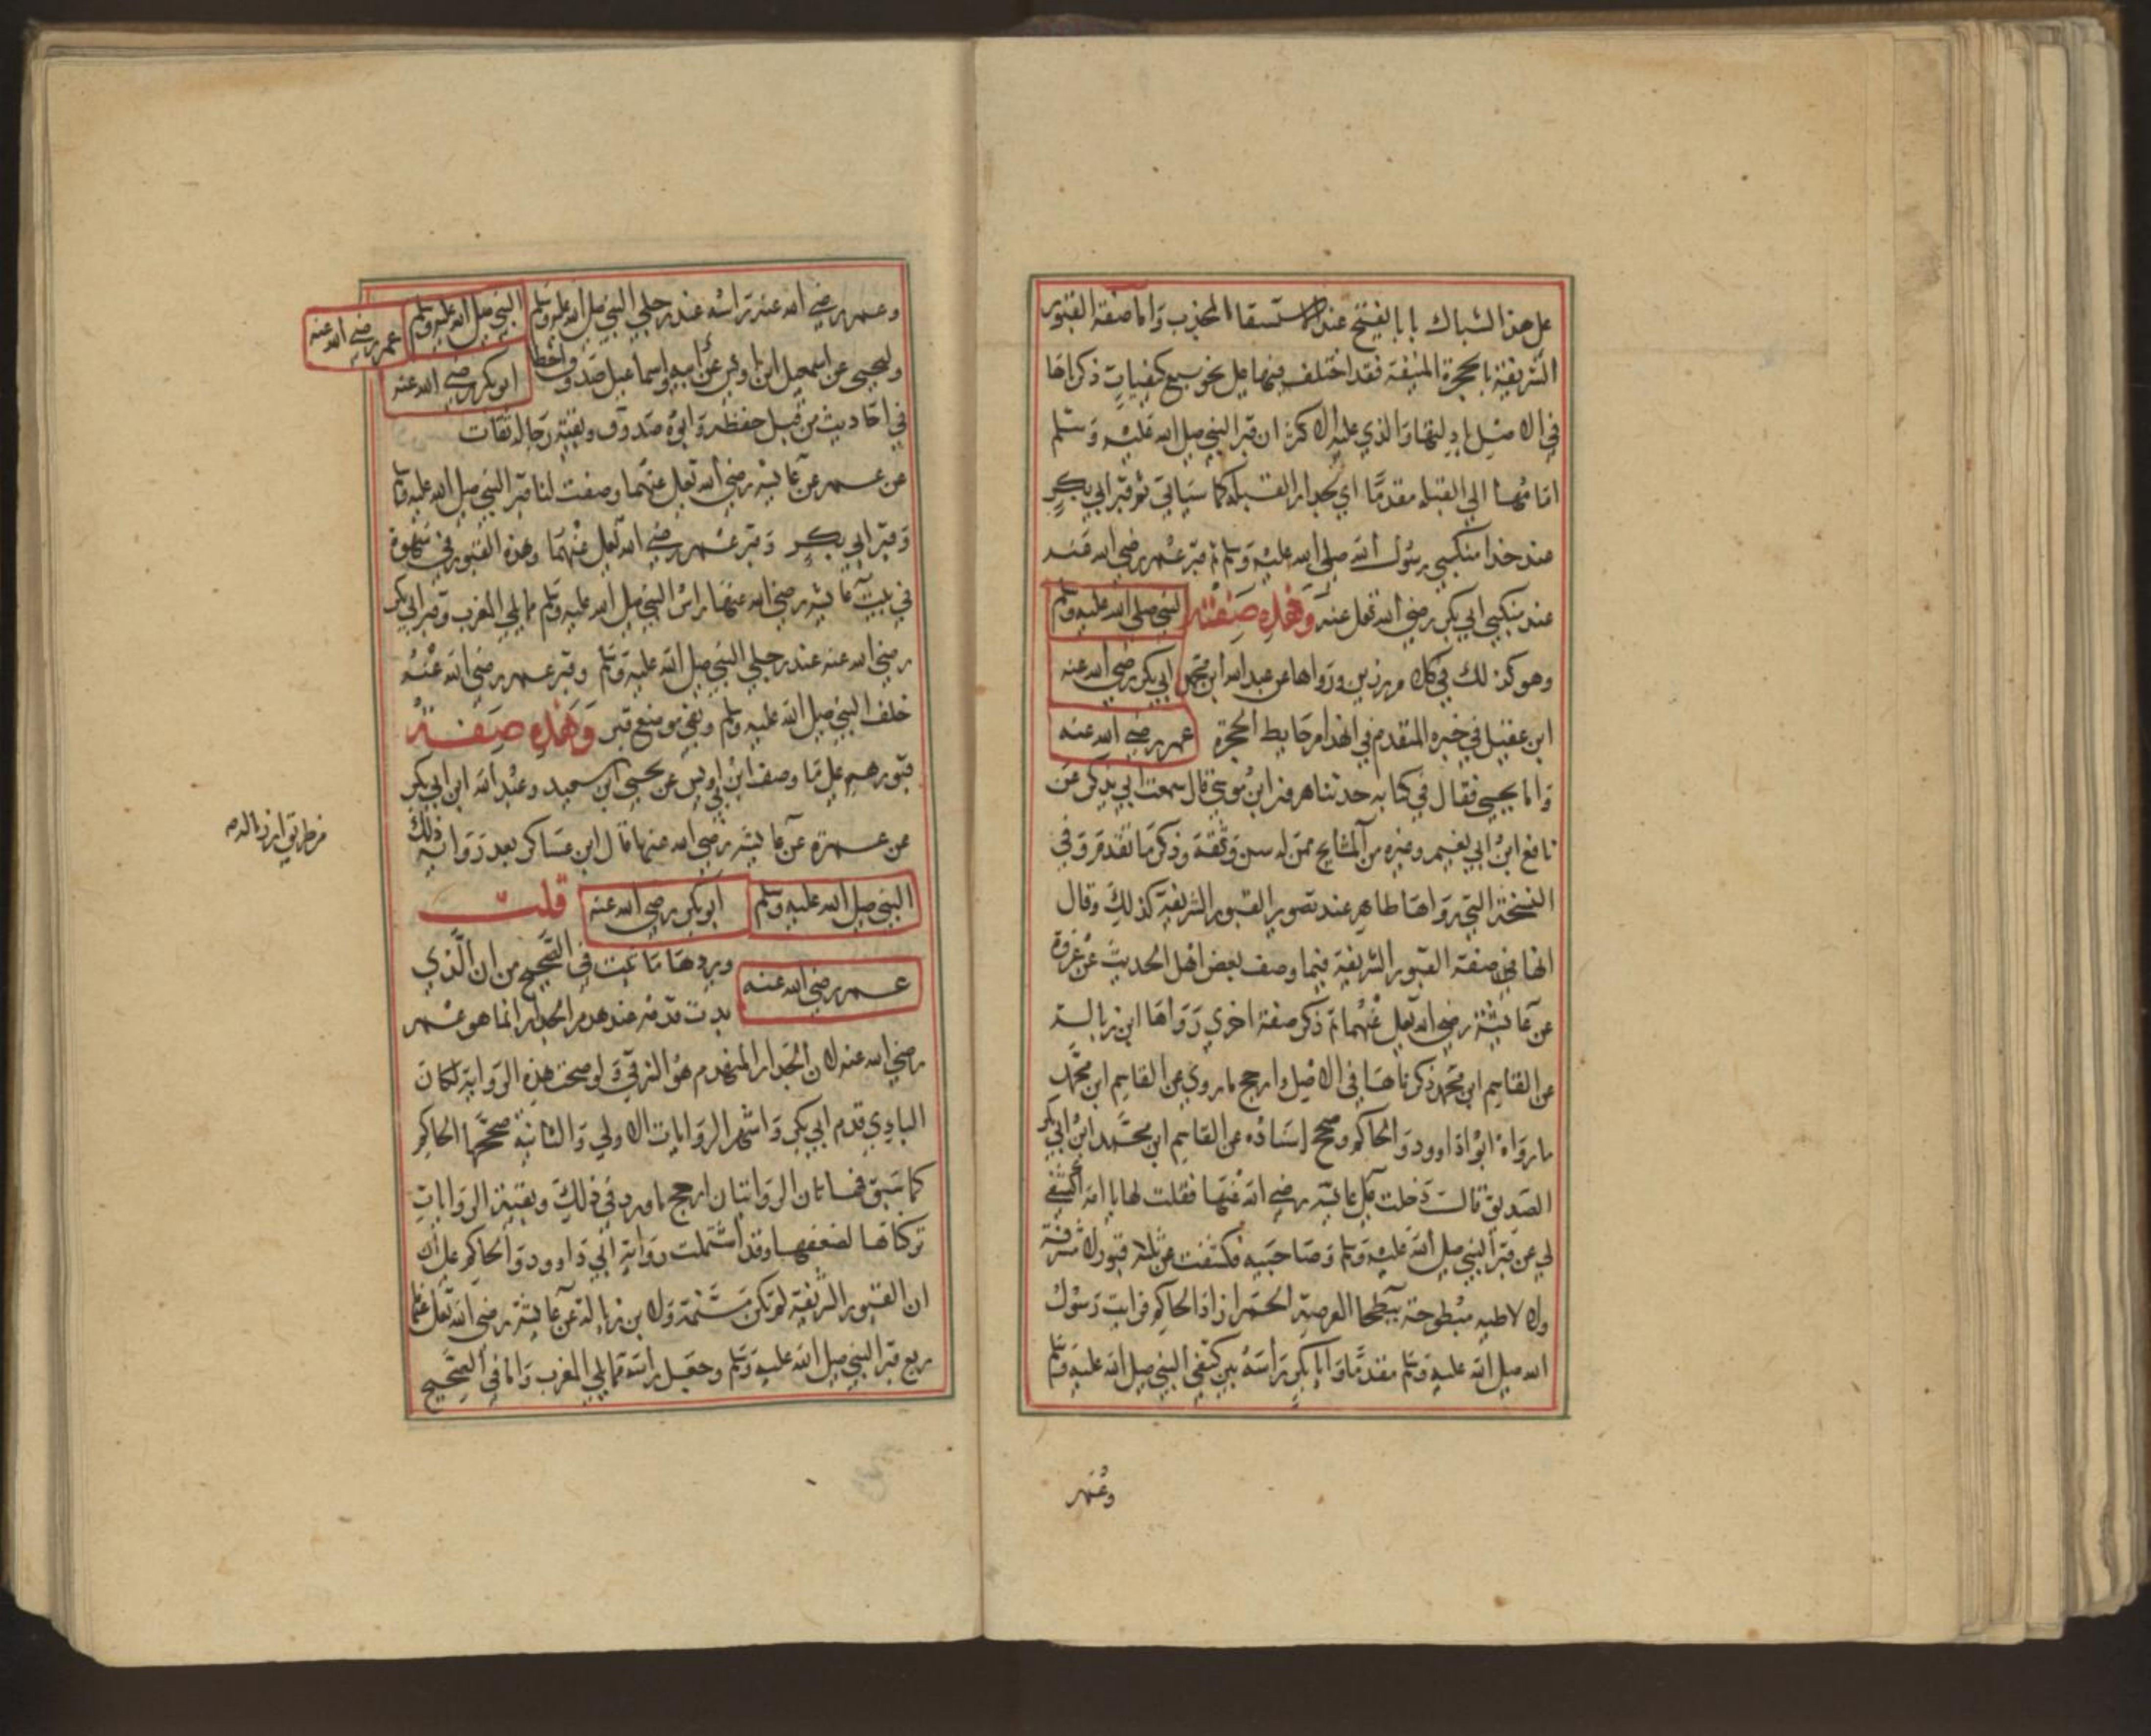 على هذا الشباك بابا يفتح عند الاستسقا المجذب واما صفة القبور
الشريفة بالحجرة المنيفة فقد اختلف فيها على نحو سبع كيفيات ذكراها
في الاصل بادلتها والذي عليه الاكثر ان قبر النبي صلى الله عليه وسلم
امامها الى القبلة مقدما اي لجدار القبلة كما سياتي ثم قبر ابي بكر
عند حذا منكبي رسول الله صلى الله عليه وسلم ثم قبر عمر رضي الله عنه
عند منكبي ابي بكر رضي الله تعالى عنه وهذه صفته
النبي صلى الله عليه وسلم
وهو كذلك في كلام رزين ورواها عن عبد الله ابن محمد
ابي بكر رضي الله عنه
ابن عقيل في خبره المتقدم في انهدام حايط الحجرة
عمر رضي الله عنه
واما يحيى فقال في كتابه حدثنا هرون ابن موسى قال سمعت ابي يذكر عن
نافع ابن ابي نعيم وغيره من المشايخ ممن له سن وثقة وذكر ما تقدم وفي
النسخة التي رواها طاهر عند تصوير القبور الشريفة كذلك وقال
انها في صفة القبور الشريفة فيما وصف بعض اهل الحديث عن عروة
عن عايشة رضي الله تعالى عنهما ثم ذكر صفة اخرى رواها ابن زبالة
عن القاسم ابن محمد ذكرناها في الاصل وارجح ما روي عن القاسم ابن محمد
ما رواه ابو اداوود والحاكم وصحح اسناده عن القاسم ابن محمد ابن ابي بكر
الصديق قالت دخلت على عايشة رضي الله عنها فقلت لها يا امه اكشفي
لي عن قبر النبي صلى الله عليه وسلم وصاحبيه فكشفت عن ثلثة قبور لا مشرفة
ولا لاطيه مبطوحة ببطحا العرصة الحمرا زاد الحاكم فرايت رسول
الله صلى الله عليه وسلم مقدما وابا بكر راسه بين كتفي النبي صلى الله عليه وسلم
وعمر
وعمر رضي الله عنه راسه عند رجلي النبي صلى الله عليه وسلم
النبي صلى الله عليه وسلم
عمر رضي الله عنه
وليحيى عن اسمعيل ابن اويس عن ابيه واسماعيل صدوق اخطا
ابو بكر رضي الله عنه
في احاديث من قبل حفظه وابوه صدوق وبقية رجاله ثقات
عن عمر عن عايشه رضي الله تعالى عنهما وصفت لنا قبر النبي صلى الله عليه وسلم
وقبر ابي بكر وقبر عمر رضي الله تعالى عنهما وهذه القبور في سهوة
في بيت عايشه رضي الله عنها راس النبي صلى الله عليه وسلم مما يلي المغرب وقبر ابي بكر
رضي الله عنه عند رجلي النبي صلى الله عليه وسلم وقبر عمر رضي الله عنه
خلف النبي صلى الله عليه وسلم وبقي موضع قبر وهذه صفة
قبورهم على ما وصف ابن ابي اويس عن يحيى ابن سعيد وعبد الله ابن ابي بكر
عن عمرة عن عايشه رضي الله عنها قال ابن عساكر بعد روايه ذلك
النبي صلى الله عليه وسلم
ابو بكر رضي الله عنه
قلت
ويردها ما ثبت في الصحيح من ان الذي
عمر رضي الله عنه
بدت قدمه عند هدم الجدار انما هو عمر
رضي الله عنه لان الجدار المنهدم هو الشرقي ولو صحت هذه الرواية لكان
البادي قدم ابي بكر واشهر الروايات الاولى والثانية صححها الحاكم
كما سبق فهاتان الروايتان ارجح ما ورد في ذلك وبقية الروايات
تركناها لضعفها وقد اشتملت رواية ابي داوود والحاكم على
ان القبور الشريفة لم تكن مسنمة ولابن زبالة عن عايشة رضي الله تعالى عنها
ربع قبر النبي صلى الله عليه وسلم وجعل راسه مما يلي المغرب واما في الصحيح